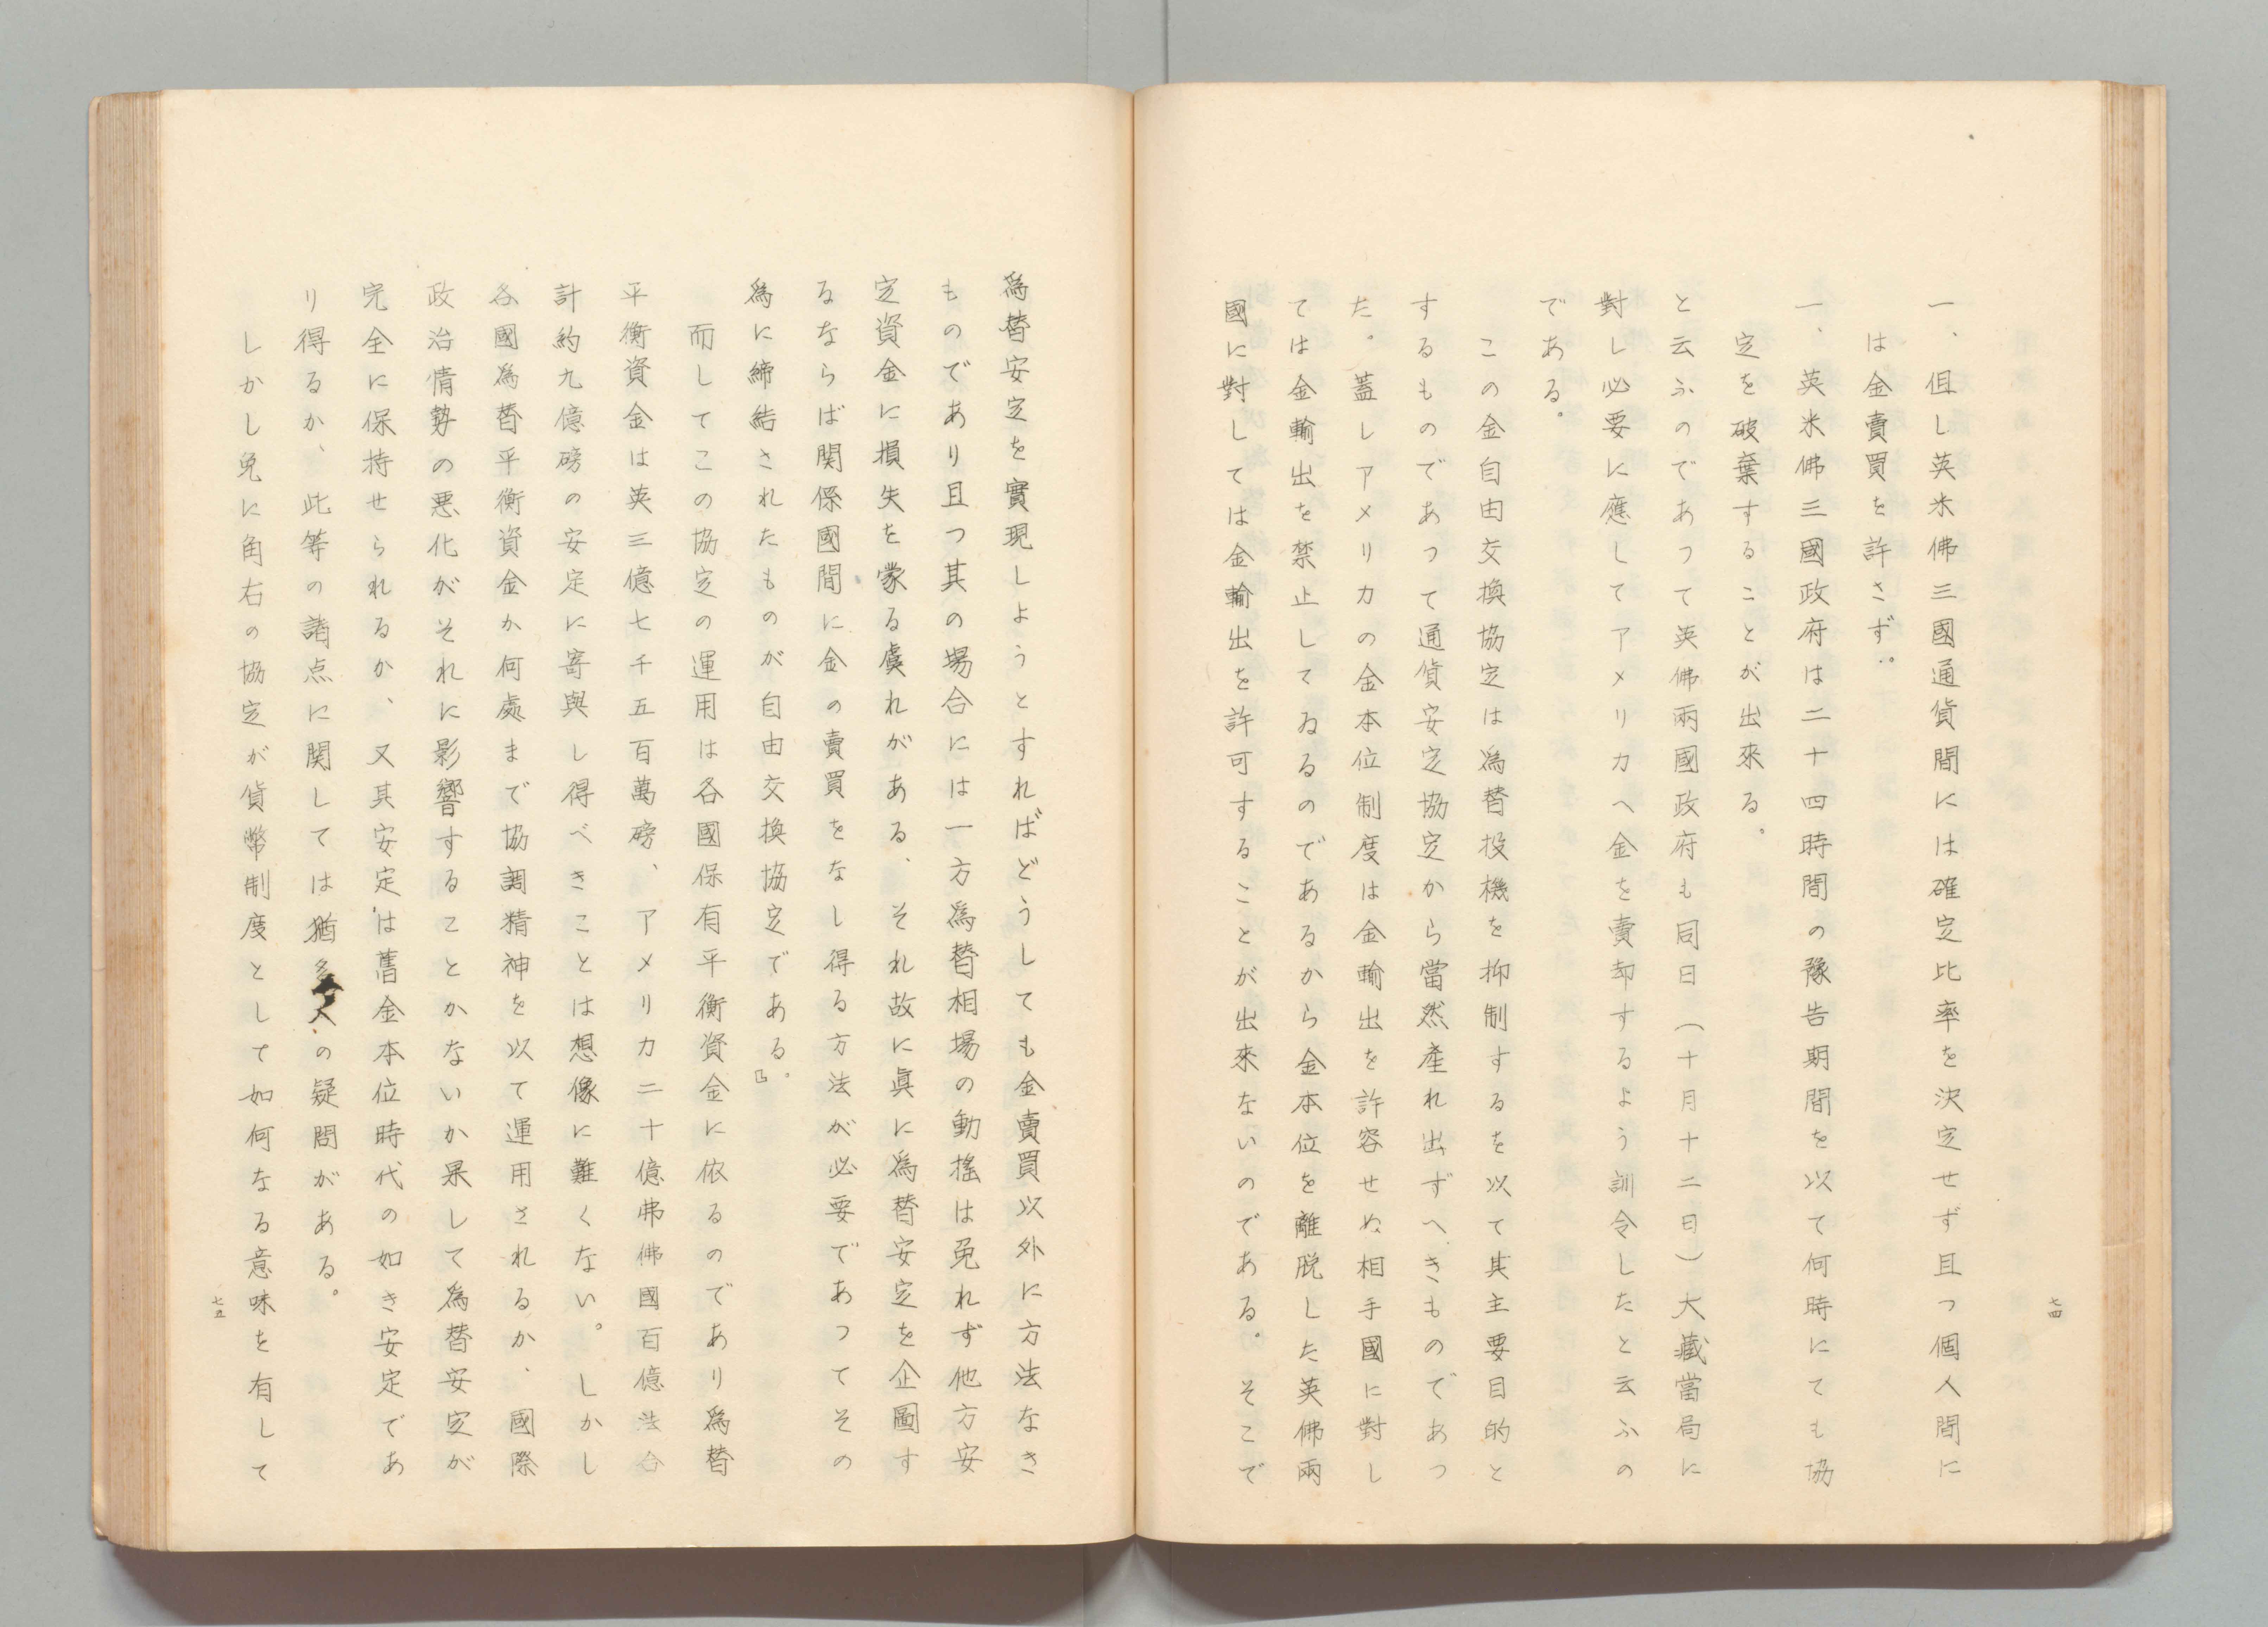 一、但し英米佛三國通貨間には確定比率を決定せず且つ個人間に
は金賣買を許さず。
一、英米佛三國政府は二十四時間の豫告期間を以て何時にても協
定を破棄することが出來る。
と云ふのであつて英佛兩國政府も同日（十月十二日）大藏當局に
對し必要に應してアメリカへ金を賣却するよう訓令したと云ふの
である。
この金自由交換協定は爲替投機を抑制するを以て其主要目的と
するものであつて通貨安定協定から當然產れ出ずへきものであつ
た。蓋しアメリカの金本位制度は金輸出を許容せぬ相手國に對し
ては金輸出を禁止してゐるのであるから金本位を離脱した英佛兩
國に對しては金輸出を許可することが出來ないのである。そこで
七四
爲替安定を實現しようとすればどうしても金賣買以外に方法なき
ものであり且つ其の場合には一方爲替相場の動搖は免れず他方安
定資金に損失を蒙る虞れがある、それ故に眞に爲替安定を企圖す
るならば関係國間に金の賣買をなし得る方法が必要であつてその
爲に締結されたものが自由交換協定である。』
而してこの協定の運用は各國保有平衡資金に依るのであり爲替
平衡資金は英三億七千五百萬磅、アメリカ二十億弗佛國百億法合
計約九億磅の安定に寄與し得べきことは想像に難くない。しかし
各國爲替平衡資金か何處まで協調精神を以て運用されるか、國際
政治情勢の悪化がそれに影響することかないか果して爲替安定が
完全に保持せられるか、又其安定は舊金本位時代の如き安定であ
り得るか、此等の諸点に関しては猶多大の疑問がある。
しかし兎に角右の協定が貨幣制度として如何なる意味を有して
七五